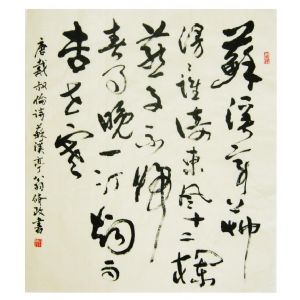 蘇溪亭上艸
漫漫誰倚東風十二欄
燕子不歸
春事晚一汀烟雨
杏花寒
唐戴叔倫詩蘇溪亭翁書